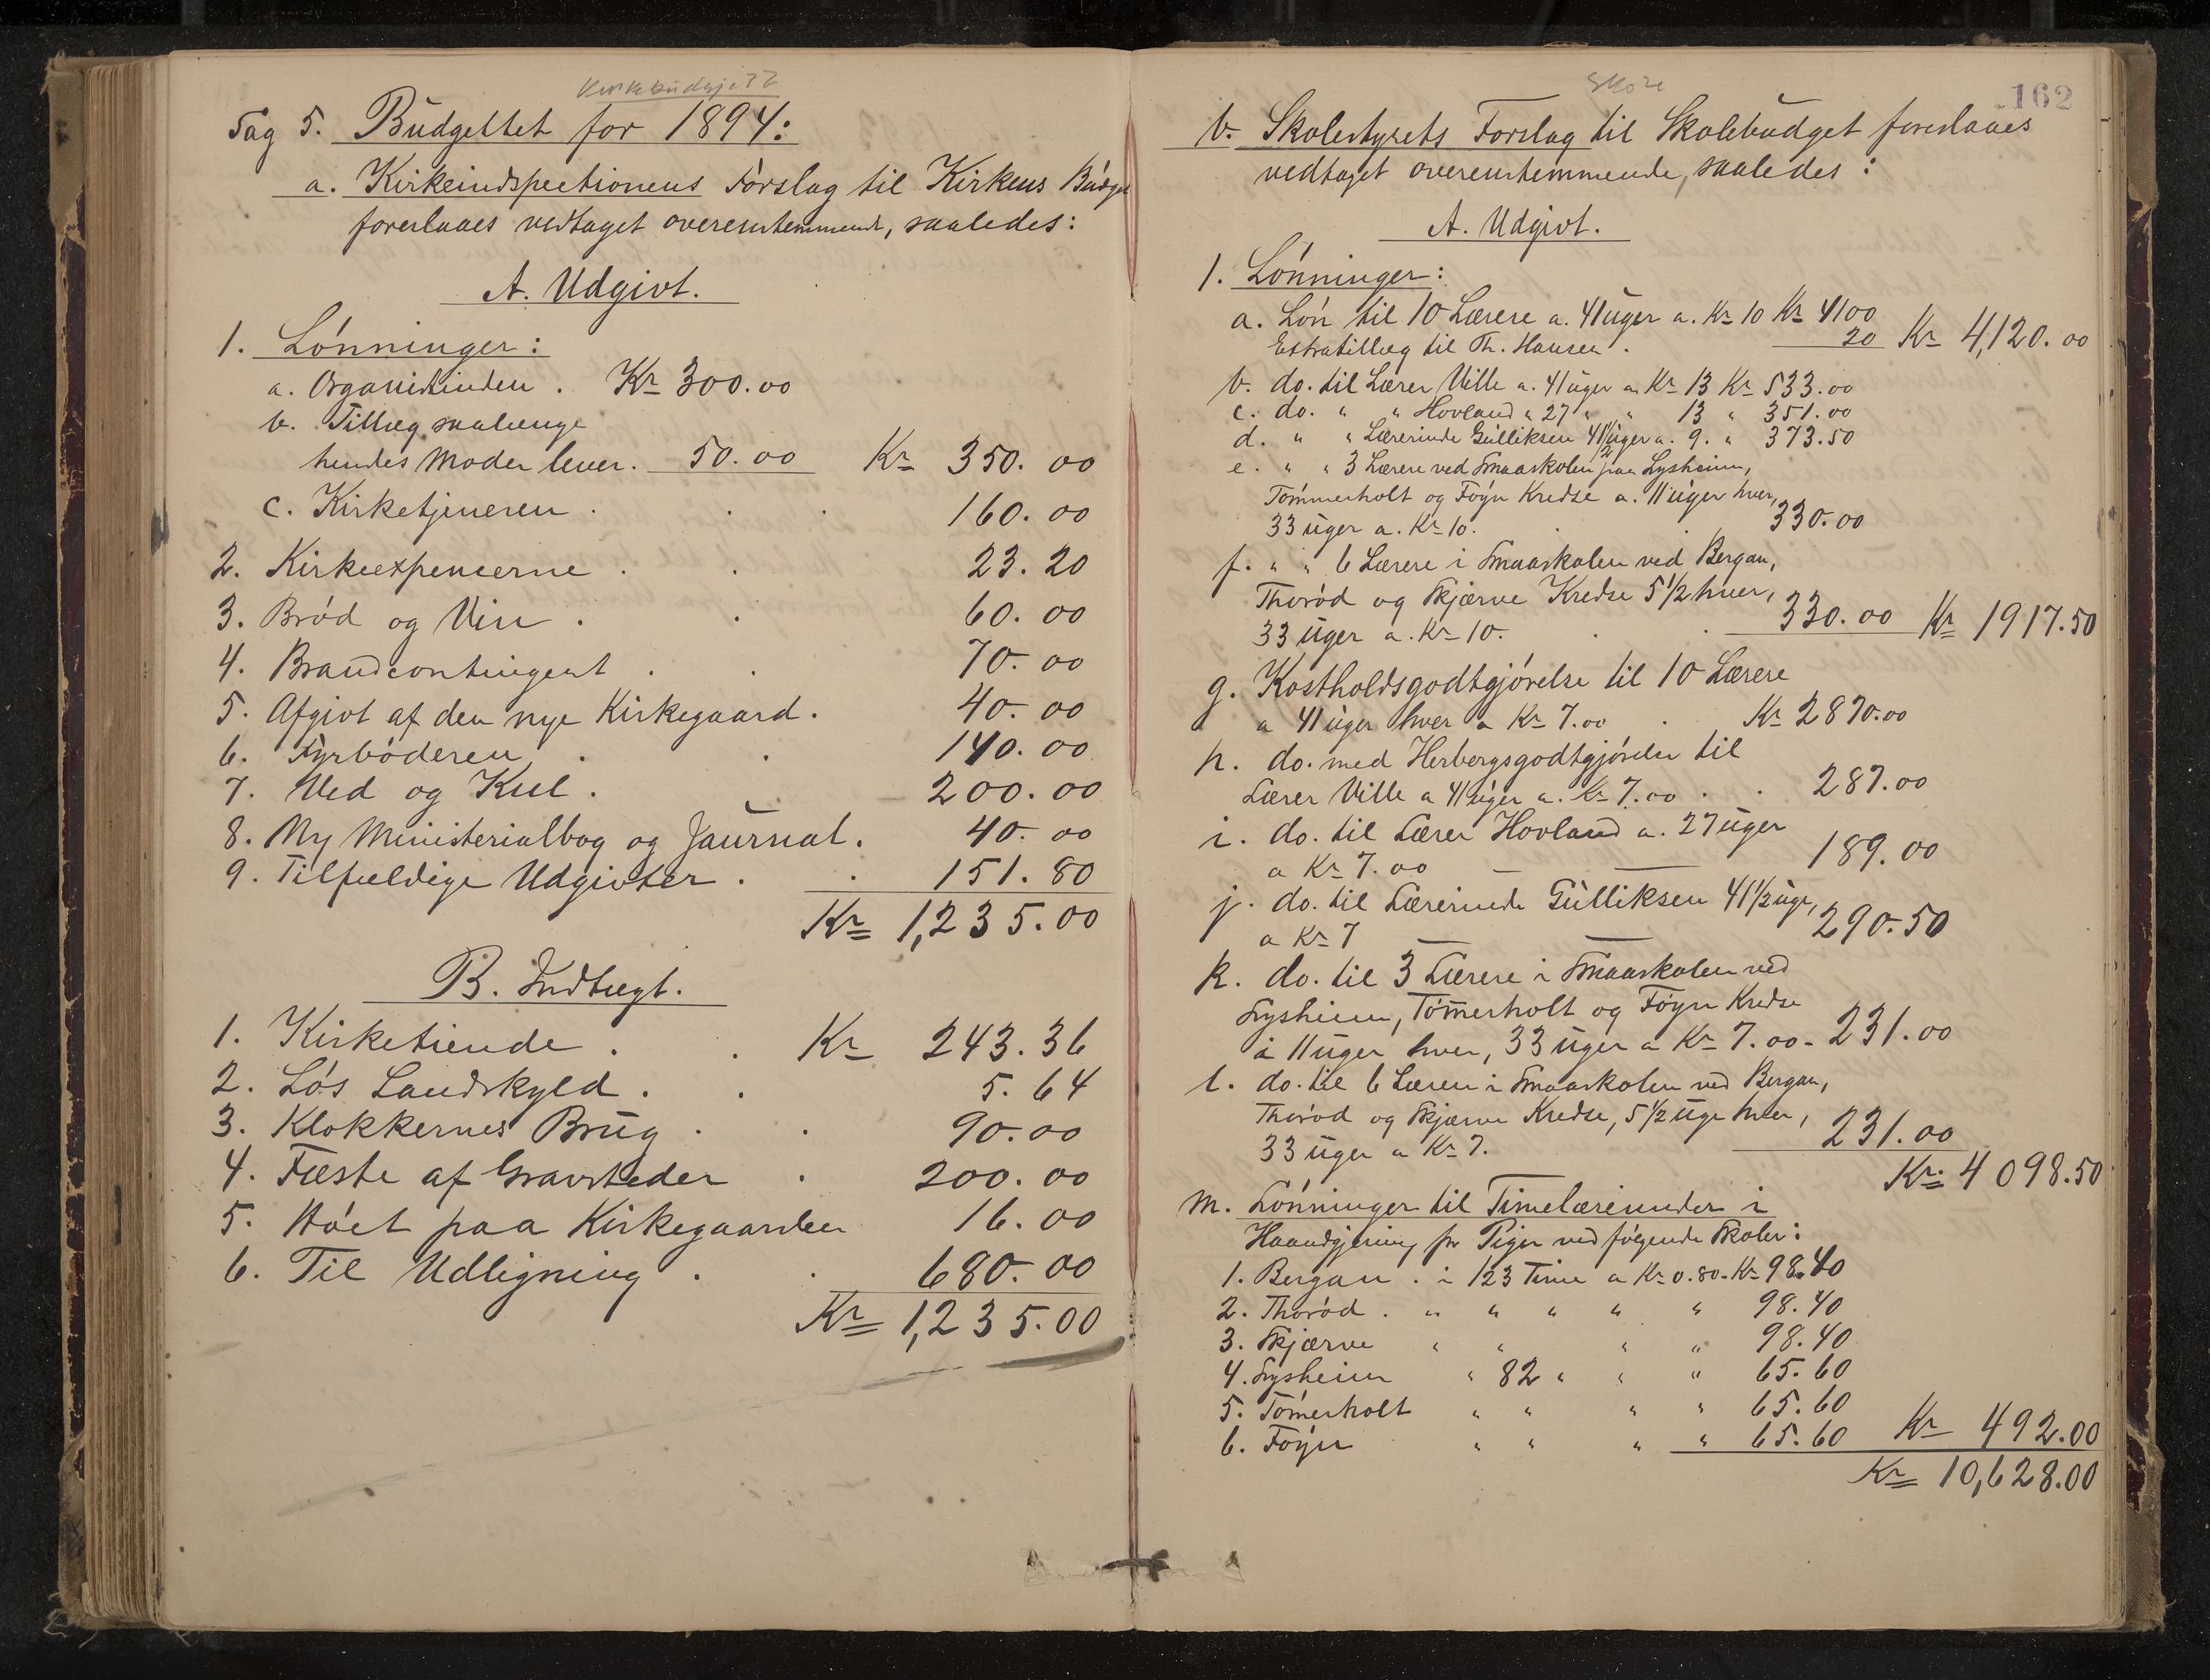 Kirkebudgjett
Sag 5. Budgettet for 1894:
a. Kirkeindspectionens Forslag til Kirkens Budget
foreslaaes vedtaget overenstemmende, saaledes:
A. Udgivt.
1. Lønninger:
a. Organistinden . Kr 300.00
b. Tillæg saalænge
hendes Moder lever. 50.00 Kr 350.00
c. Kirketjeneren . . . 160.00
2. Kirkeexpencerne . . 23.20
3. Brød og Vin . . 60.00
4. Brandcontingent . . 70.00
5. Afgivt af den nye Kirkegaard. 40.00
6. Fyrbøderen . . 140.00
7. Ved og Kul . 200.00
8. Ny Ministerialbog og Jaurnal. 40.00
9. Tilfældige Udgivter . . 151.80
Kr 1,235.00
B. Indtægt.
1. Kirketiende . . Kr 243.36
2. Løs Landskyld . . 5.64
3. Klokkernes Brug . . 90.00
4. Fæste af Gravsteder . 200.00
5. Høet paa Kirkegaarden 16.00
6. Til Udligning . . 680.00
Kr 1,235.00
Skole
162
b. Skolestyrets Forslag til Skolebudget foreslaaes
vedtaget overenstemmende, saaledes:
A. Udgivt.
1. Lønninger:
a. Løn til 10 Lærere a. 41 uger a. Kr 10 Kr 4100
Extratillæg til Th. Hansen . 20 Kr 4,120.00
b. do. til Lærer Ville a. 41 uger a Kr 13 Kr 533.00
c. do. " " Hovland " 27 " " 13 " 351.00
d. " " Lærerinde Gulliksen 41 1/2 uger a. 9. " 373.50
e. " " 3 Lærere ved Smaaskolen paa Lysheim,
Tømmerholt og Føyn Kredse a. 11 uger hver,
33 uger a. Kr 10. . . 330.00
f. " " 6 Lærere i Smaaskolen ved Bergan,
Thorød og Skjærve Kredse 5 1/2 hver,
33 uger a. Kr 10. . . 330.00 Kr 1917.50
g. Kostholdsgodtgjørelse til 10 Lærere
a 41 uger hver a Kr 7.00 . Kr 2870.00
h. do. med Herbergsgodtgjørelse til
Lærer Ville a 41 uger a. Kr 7.00 . . 287.00
i. do. til Lærer Hovland a. 27 uger
a Kr 7.00 — — 189.00
j. do. til Lærerinde Gulliksen 41 1/2 uge,
a Kr 7 — — 290.50
k. do. til 3 Lærere i Smaaskolen ved
Lysheim, Tømerholt og Føyn Kredse
a 11 uger hver, 33 uger a Kr 7.00 - 231.00
l. do. til 6 Lærere i Smaaskolen ved Bergan,
Thorød og Skjærve Kredse, 5 1/2 uge hver,
33 uger a Kr 7. 231.00
Kr. 4098.50
m. Lønninger til Timelærerinder i
Haandgjerning for Piger ved følgende Skoler:
1. Bergan . i 123 Time a Kr 0.80 - Kr 98.40
2. Thorød . " " " " " 98.40
3. Skjærve " " " " 98.40
4. Lysheim " 82 " " " 65.60
5. Tømerholt " " " " 65.60
6. Føyn " " " " 65.60 Kr 492.00
Kr 10,628.00